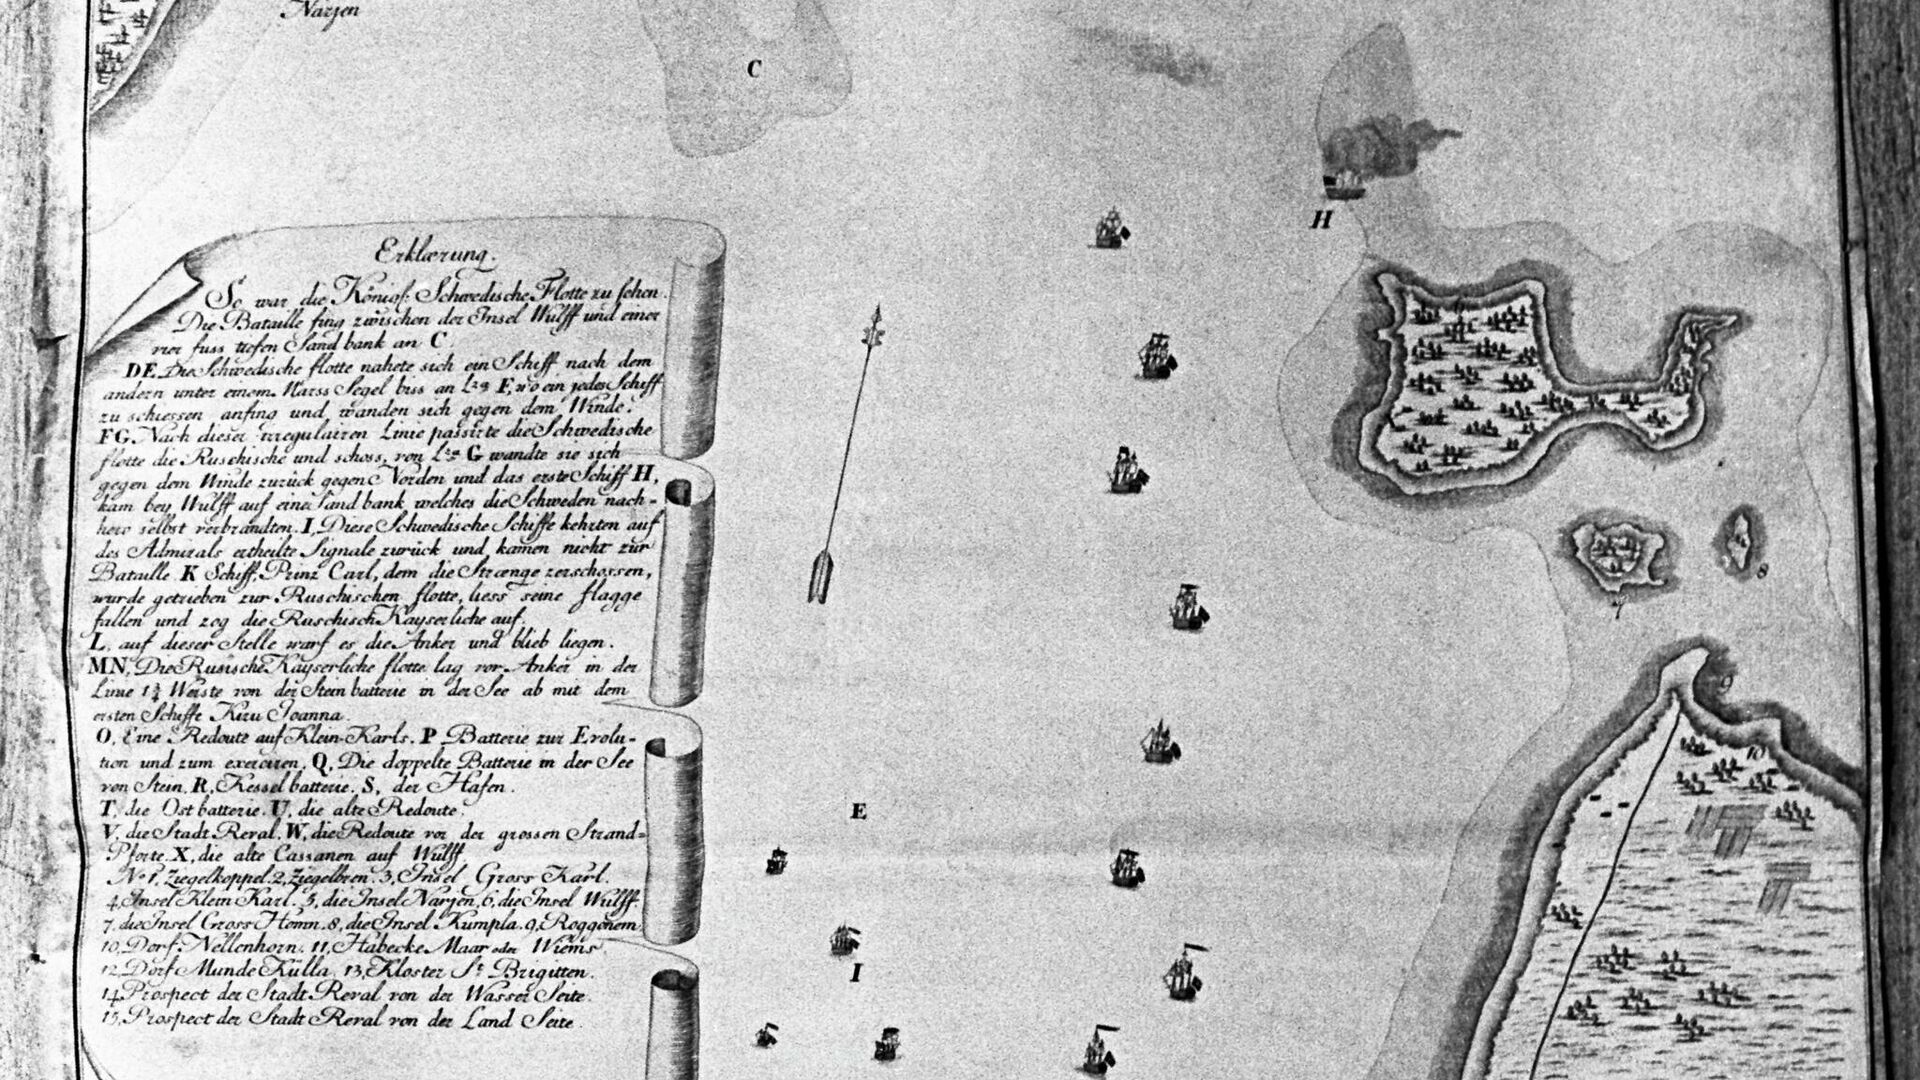 Narjen
C
H
Erklærung.
So war die Königl: Schwedische Flotte zu sehen.
Die Bataille fing zwischen der Insel Wulff und einer
vier fuss tiefen Sandbank an C.
DE, Die Schwedische flotte nahete sich ein Schiff nach dem
andern unter einem Marss Segel biss an F, wo ein jedes Schiff
zu schiessen anfing und wanden sich gegen dem Winde.
FG. Nach dieser irregulairen Linie passirte die Schwedische
flotte die Ruschische und schoss, von G wandte sie sich
gegen dem Winde zurück gegen Norden und das erste Schiff H,
kam bey Wulff auf eine Sandbank welches die Schweden nach-
hero selbst verbrandten. I, Diese Schwedische Schiffe kehrten auf
des Admirals ertheilte Signale zurück und kamen nicht zur
Bataille. K Schiff, Prinz Carl, dem die Strænge zerschossen,
wurde getrieben zur Ruschischen flotte, liess seine flagge
fallen und zog die Ruschisch Kayserliche auf.
L, auf dieser Stelle warf es die Anker und blieb liegen.
MN, Die Rusische Kayserliche flotte lag vor Anker in der
Linie Werste von der Stein batterie in der See ab mit dem
ersten Schiffe Kiru Joanna.
O, Eine Redoute auf Klein-Karls. P Batterie zur Evolu-
tion und zum exerciren. Q, Die doppelte Batterie in der See
von Stein, R, Kessel batterie. S, der Hafen.
T, die Ost batterie. U, die alte Redoute.
V, die Stadt Reval. W, die Redoute vor der grossen Strand=
Pforte. X, die alte Cassanen auf Wulff.
No 1, Ziegelkoppel. 2, Ziegelbren. 3, Insel Gross Karl.
4, Insel Klein Karl. 5, die Insel Narjen, 6, die Insel Wulff.
7, die Insel Gross Homn. 8, die Insel Kumpla. 9, Roggonem
10, Dorf Nellenhorn. 11, Habecke Maar oder Wiems
12, Dorf Munde Külla, 13, Kloster St Brigitten.
14, Prospect der Stadt Reval von der Wasser Seite.
15, Prospect der Stadt Reval von der Land Seite.
6
7
8
9
10
E
I